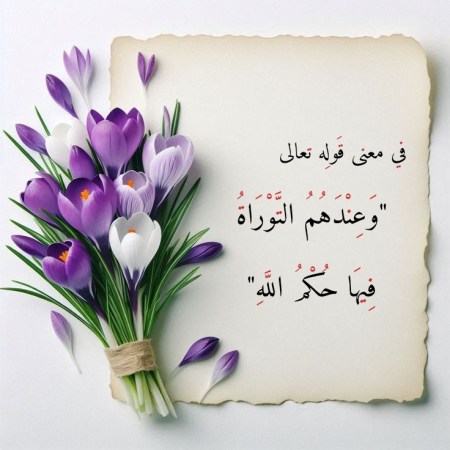 في معنى قَولِه تعالى
"وَعِنْدَهُمُ التَّوْرَاةُ
فِيهَا حُكْمُ اللَّهِ"